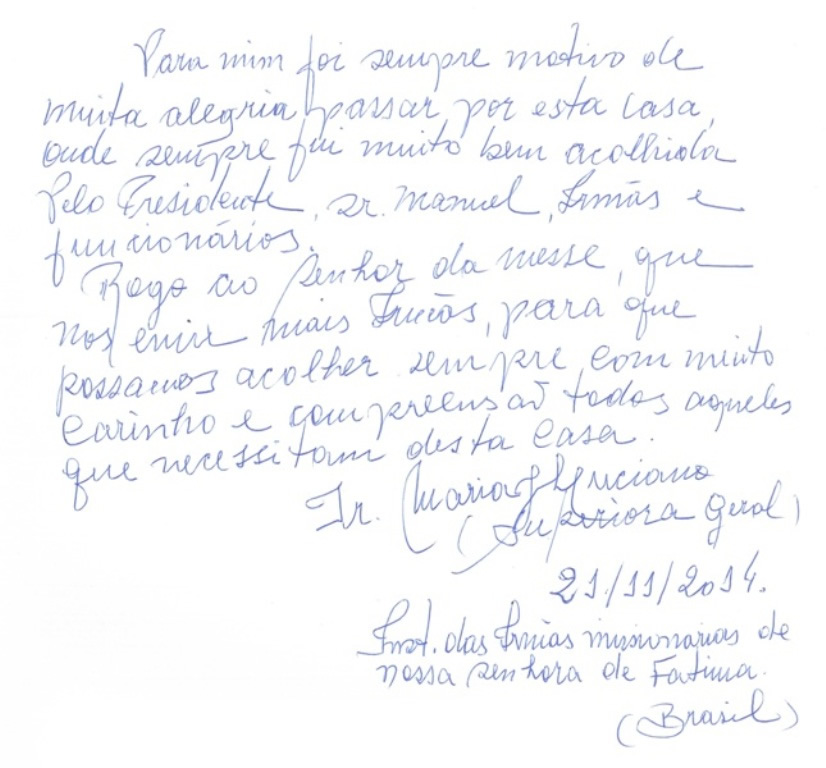 Para mim foi sempre motivo de
muita alegria passar por esta casa,
onde sempre fui muito bem acolhida
pelo Presidente, sr. Manuel, Irmãs e
funcionários.
Rogo ao Senhor da messe, que
nos envie mais Irmãs, para que
possamos acolher sempre com muito
carinho e compreensão todos aqueles
que necessitam desta casa.
Ir. Maria
(Superiora Geral)
21/11/2014.
Inst. das Irmãs missionarias de
nossa senhora de Fatima.
(Brasil)